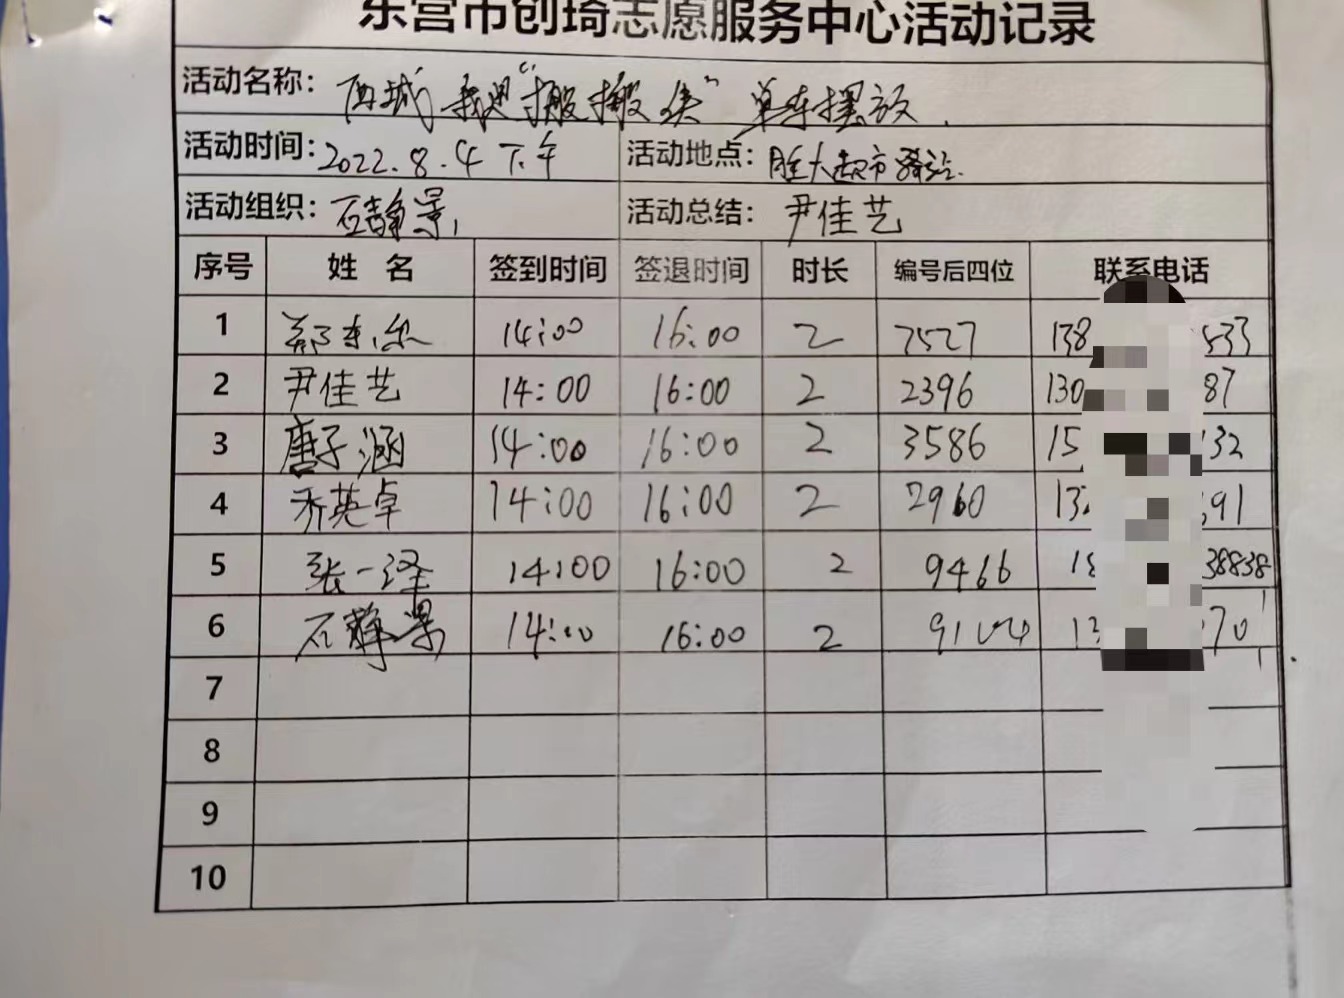 东营市创琦志愿服务中心活动记录
活动名称：西城 我是“搬搬侠” 单车摆放
活动时间：2022.8.4 下午 活动地点：胜大超市驿站
活动组织：石静景 活动总结：尹佳艺
序号 姓 名 签到时间 签退时间 时长 编号后四位 联系电话
1 郑 14:00 16:00 2 7527 138 533
2 尹佳艺 14:00 16:00 2 2396 130 87
3 唐子涵 14:00 16:00 2 3586 15 32
4 乔英卓 14:00 16:00 2 2960 13 91
5 张一泽 14:00 16:00 2 9466 18 38838
6 石静景 14:00 16:00 2 9104 13 70
7
8
9
10